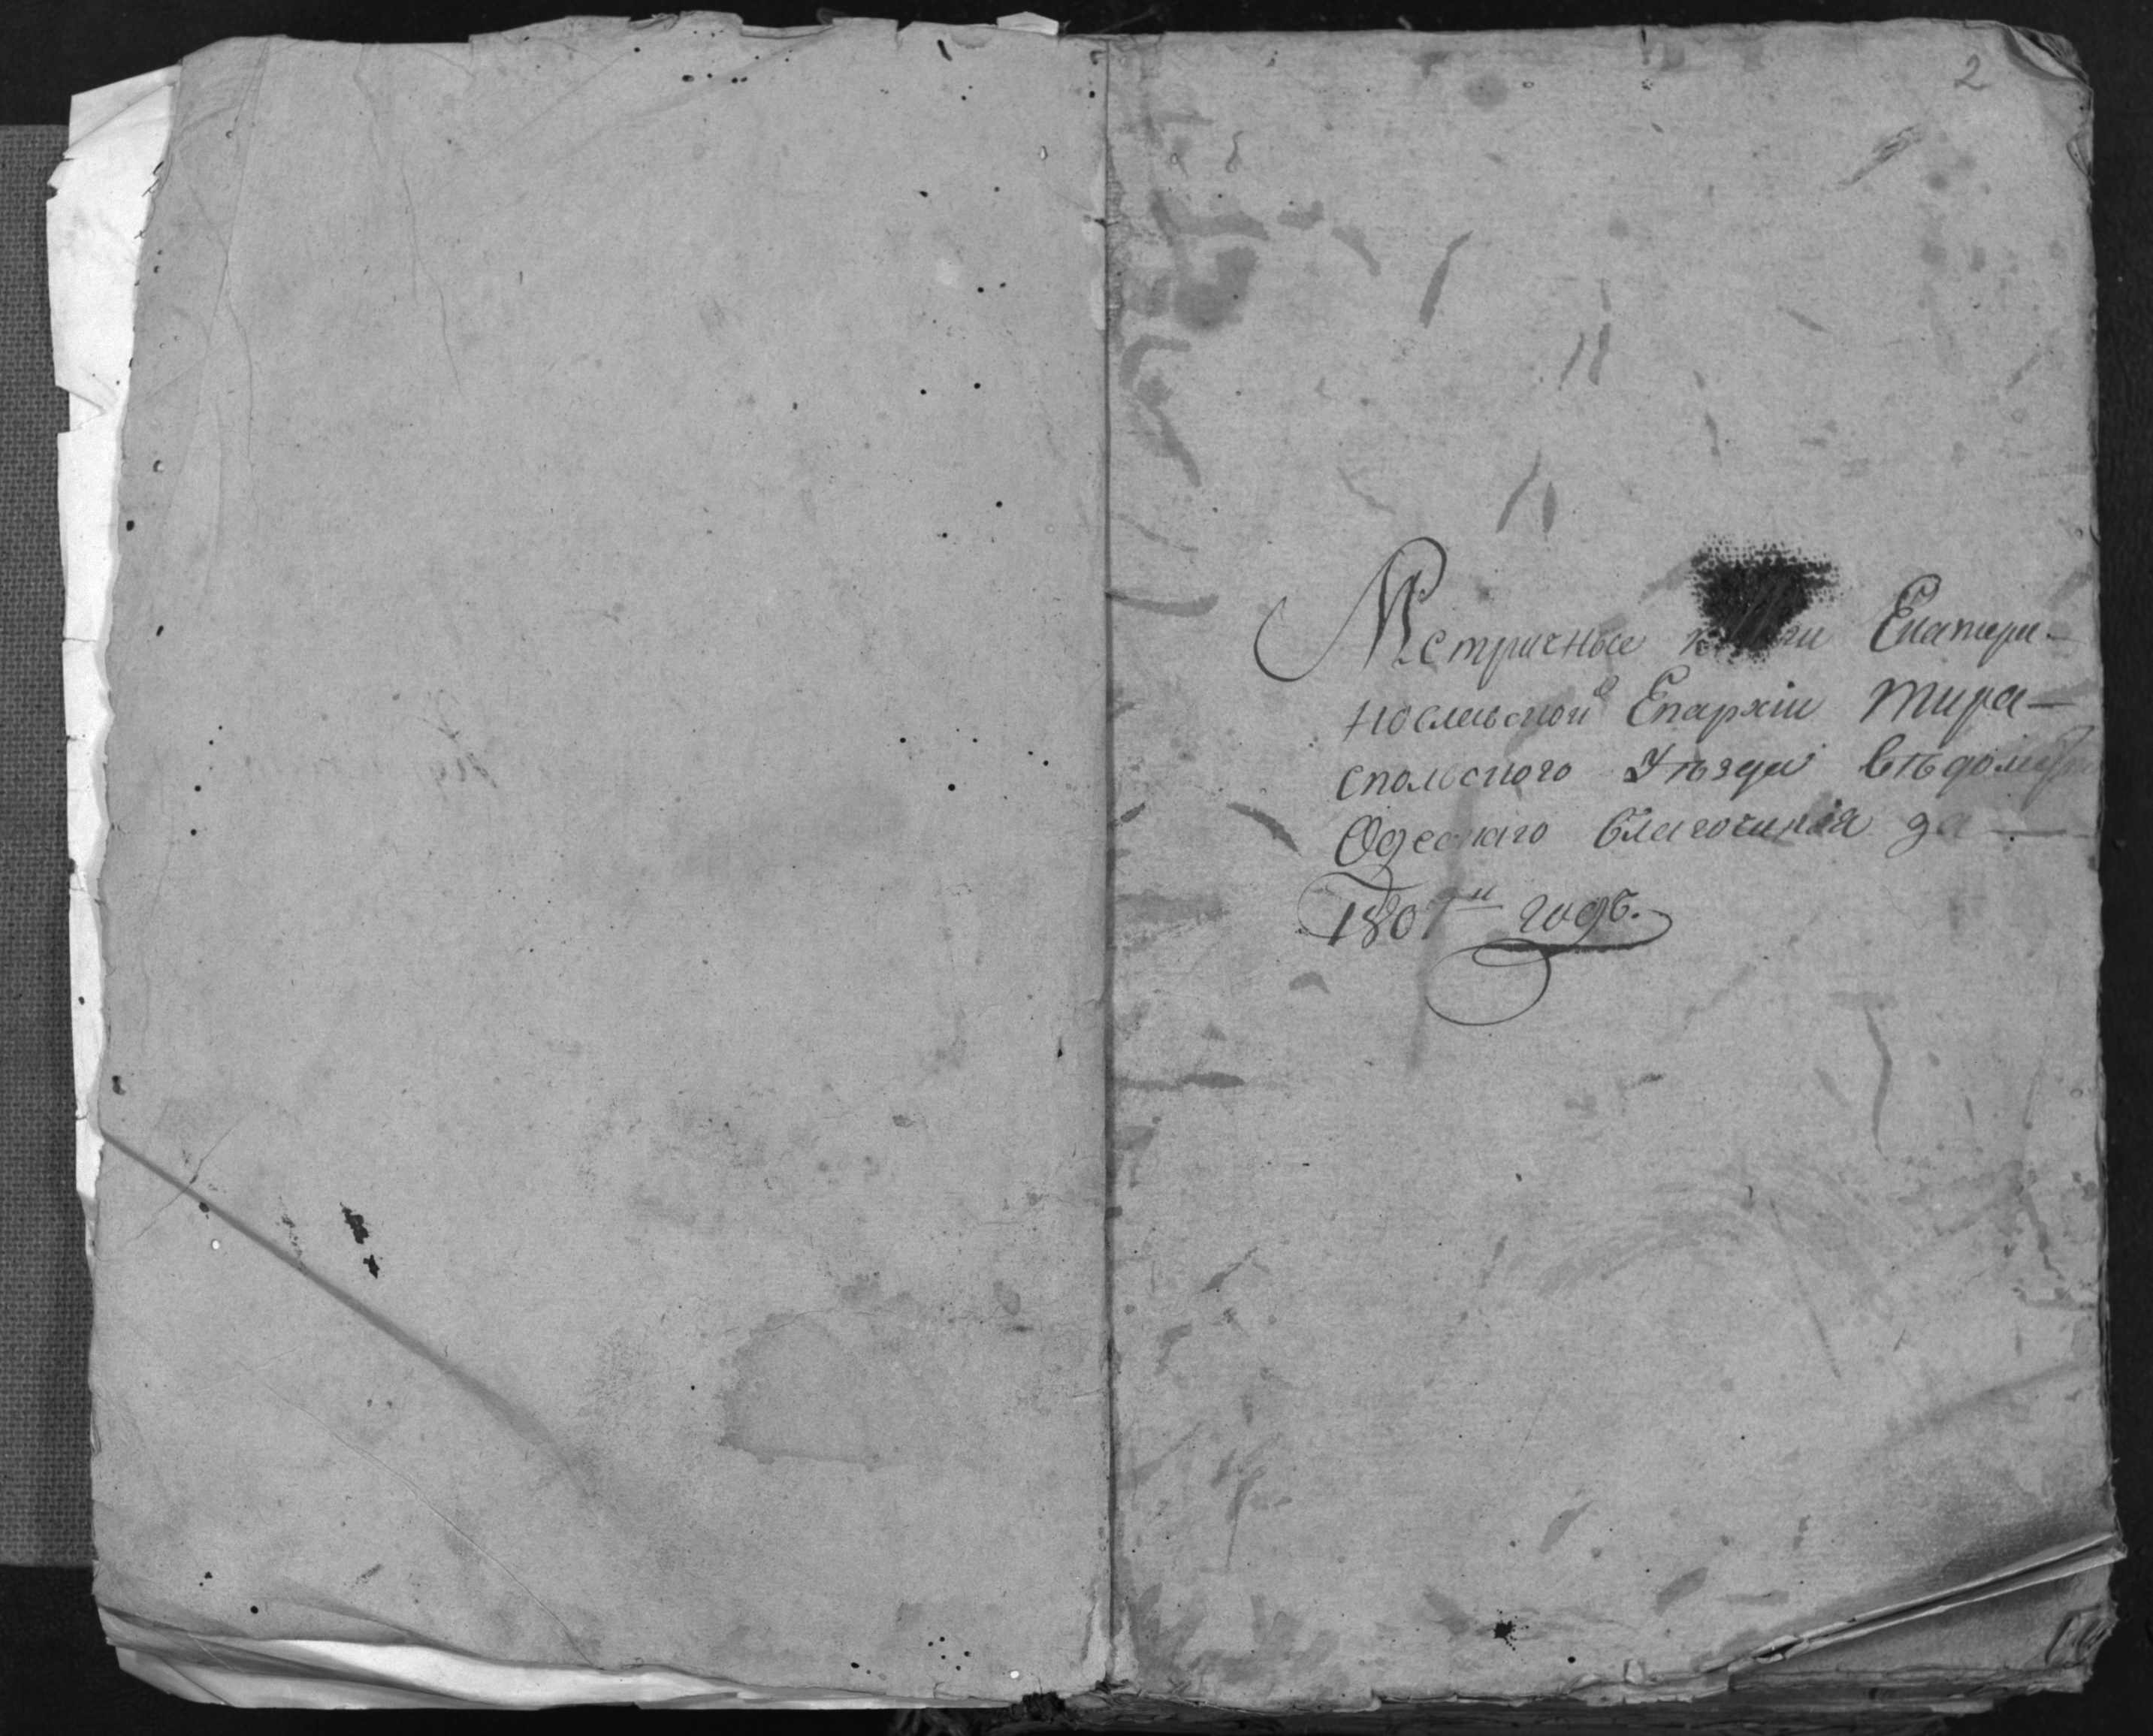 2
Метричные книги Екатери-
нославской Епархіи Тира-
спольского Уѣзда вѣдомства
Одесскаго благочинія за —
1807й годъ.